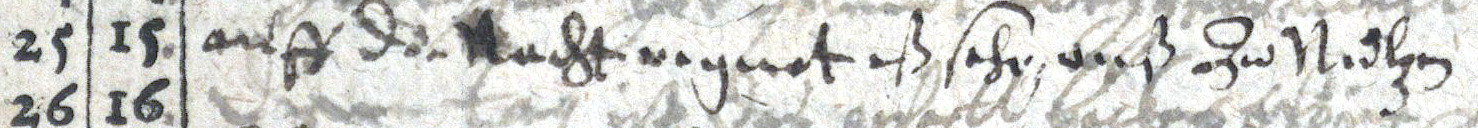 25 15. auff die Nacht regnet eß sehr, auß zu
26 16